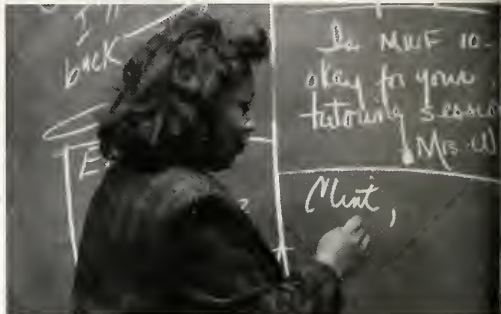 I'll
back
E
Is MWF 10-
okay for your
tutoring sessio
MB-W
Clint,